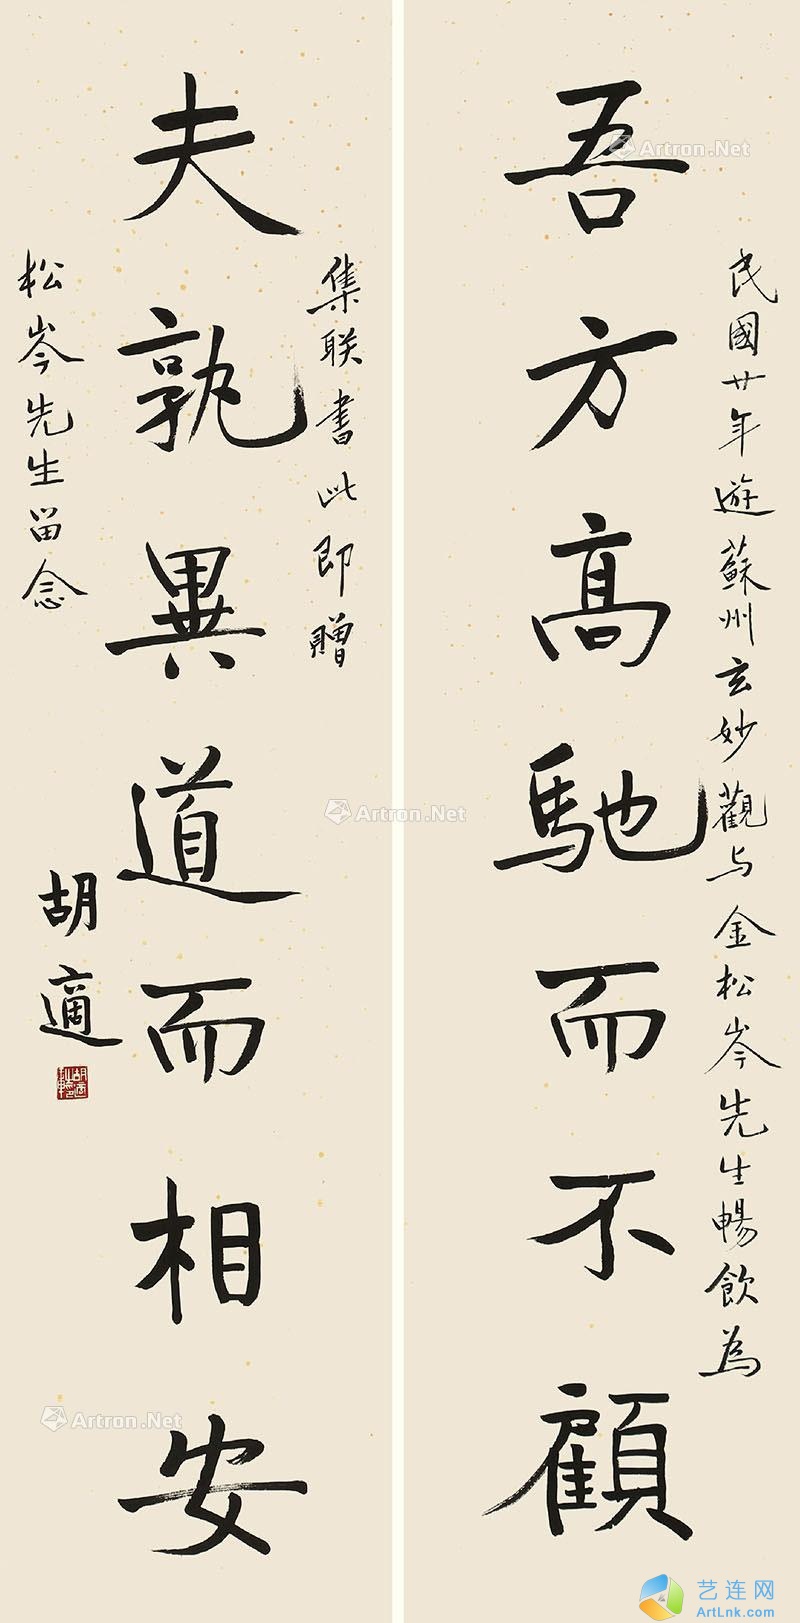 民國廿年遊蘇州玄妙觀与金松岑先生暢飲為
吾方高馳而不顧
集联書此即贈
夫孰異道而相安
松岑先生留念
胡適
Artron.Net
Artron.Net
Artron.Net
艺连网
ArtLnk.com